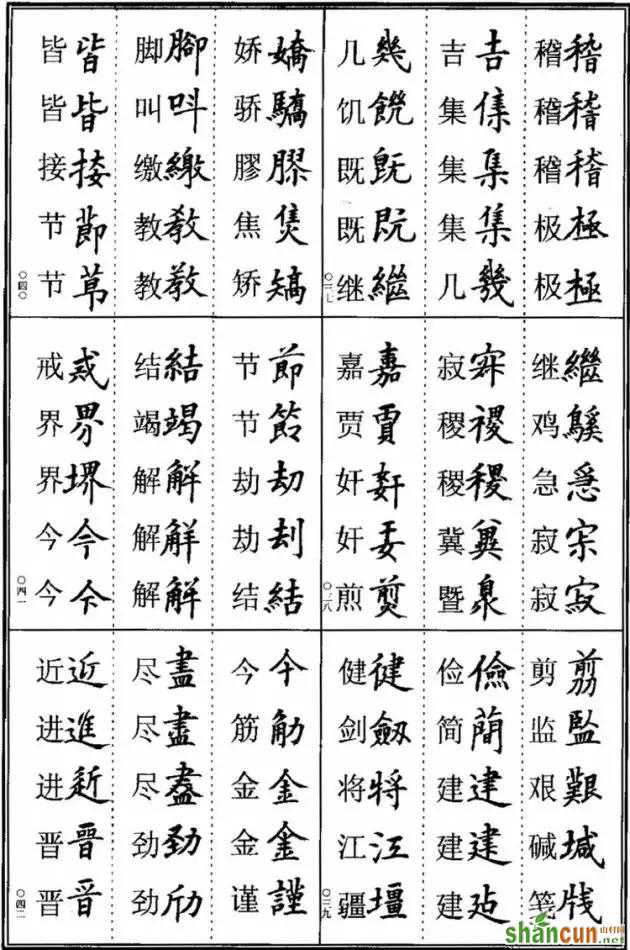 稽稽 稽稽 稽稽 极極 极極
吉吉 集 集集 集集 几幾
几幾 饥饑 既既 既既 继繼
〇三七
继繼 鸡鷄 急急 寂 寂寂
寂 稷稷 稷稷 冀冀 暨
嘉嘉 贾賈 奸奸 奸 煎煎
〇三八
剪剪 监監 艰艱 碱堿 笺牋
俭儉 简簡 建建 建建 建
健健 剑劔 将将 江江 疆壃
〇三九
娇嬌 骄驕 膠膠 焦焦 矫矯
脚腳 叫叫 缴繳 教教 教教
皆皆 皆皆 接接 节節 节
〇四〇
节節 节 劫劫 劫刦 结結
结結 竭竭 解解 解觧 解觧
戒戒 界界 界堺 今今 今
〇四一
今今 筋 金金 金金 谨謹
尽盡 尽盡 尽盡 劲勁 劲
近近 进進 进 晋晉 晋晋
〇四二
shancun
山村网